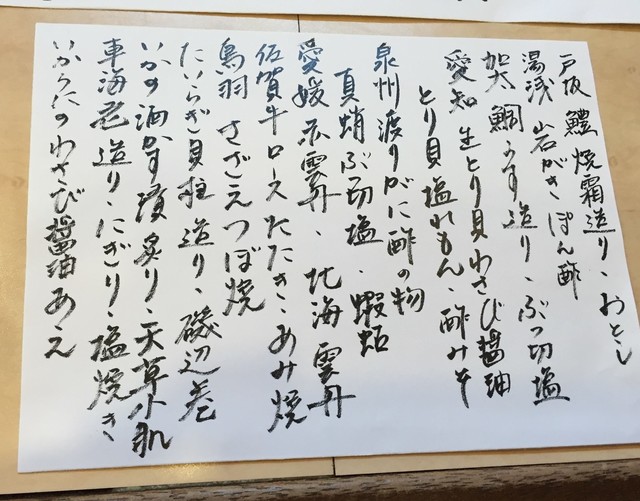 戸坂 鱧 焼霜造り、おとし
湯浅 岩がき ぽん酢
加太 鯛 うす造り、ぶつ切塩
愛知 生とり貝 わさび醤油
とり貝 塩れもん、酢みそ
泉州 渡りがに酢の物
真蛸 ぶつ切塩、蝦蛄
愛媛 赤雲丹、北海 雲丹
佐賀牛ロースたたき、あみ焼
鳥羽 さざえつぼ焼
たいらぎ貝柱 造り、磯辺巻
いかの酒かす漬 炙り、天草小肌
車海老 造り、にぎり、塩焼き
わさび醤油あえ